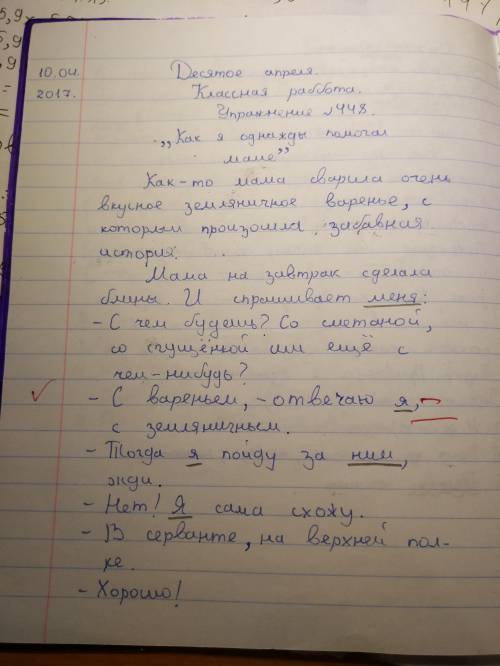 10.04.
2017.
Десятое апреля.
Классная раббота.
Упражнение №448.
„Как я однажды помогал
маме”
Как-то мама сварила очень
вкусное земляничное варенье, с
которым произошла забавная
история.
Мама на завтрак сделала
блины. И спрашивает меня:
- С чем будешь? Со сметаной,
со сгущёнкой или ещё с
чем-нибудь?
- С вареньем, - отвечаю я, -
с земляничным.
- Тогда я пойду за ним,
жди.
- Нет! Я сама схожу.
- В серванте, на верхней пол-
ке.
- Хорошо!